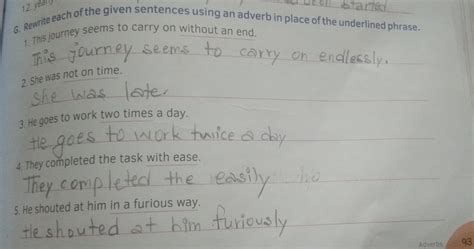 12. years
been started
G. Rewrite each of the given sentences using an adverb in place of the underlined phrase.
1. This journey seems to carry on without an end.
This journey seems to carry on endlessly.
2. She was not on time.
She was late.
3. He goes to work two times a day.
He goes to work twice a day
4. They completed the task with ease.
They completed the easily
5. He shouted at him in a furious way.
He shouted at him furiously
Adverbs 93